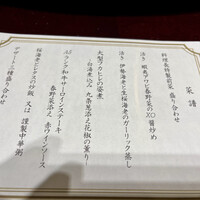 菜譜
料理長特製前菜 盛り合わせ
活き 鮑貝アワビと春野菜のXO醤炒め
活き 伊勢海老と生桜海老のガーリック蒸し
大型フカヒレの姿煮
~白湯煮込み 九条葱添え 花椒の薫り~
A5ランク和牛サーロインステーキ
春野菜添え 赤ワインソース
桜海老とレタスの炒飯 又は 謹製中華粥
デザート三種盛り合わせ